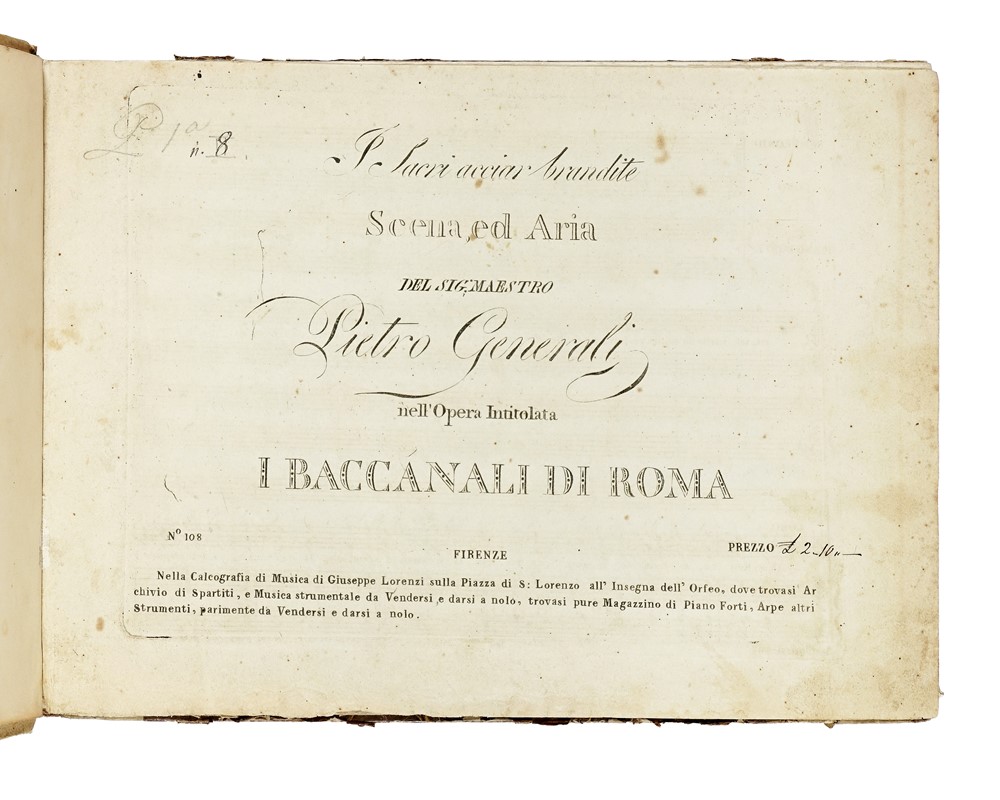 P. 1ª
n. 8
I Sacri acciar brandite
Scena, ed Aria
DEL SIG. MAESTRO
Pietro Generali
nell'Opera Intitolata
I BACCÁNALI DI ROMA
Nº 108
PREZZO £ 2-10"
FIRENZE
Nella Calcografia di Musica di Giuseppe Lorenzi sulla Piazza di S: Lorenzo all' Insegna dell' Orfeo, dove trovasi Ar
chivio di Spartiti, e Musica strumentale da Vendersi e darsi a nolo, trovasi pure Magazzino di Piano Forti, Arpe altri
Strumenti, parimente da Vendersi e darsi a nolo.